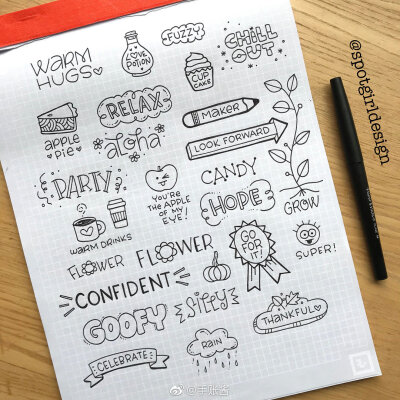 WARM HUGS
LOVE POTION
FUZZY
CUP CAKE
CHILL OUT
@spotgirldesign
APPLE PIE
RELAX
aloha
MAKER
LOOK FORWARD
PARTY
YOU'RE THE APPLE OF MY EYE!
CANDY
HOPE
GROW
WARM DRINKS
FLOWER
FLOWER
GO FOR IT!
SUPER!
CONFIDENT
SILLY
GOOFY
THANKFUL
CELEBRATE
RAIN